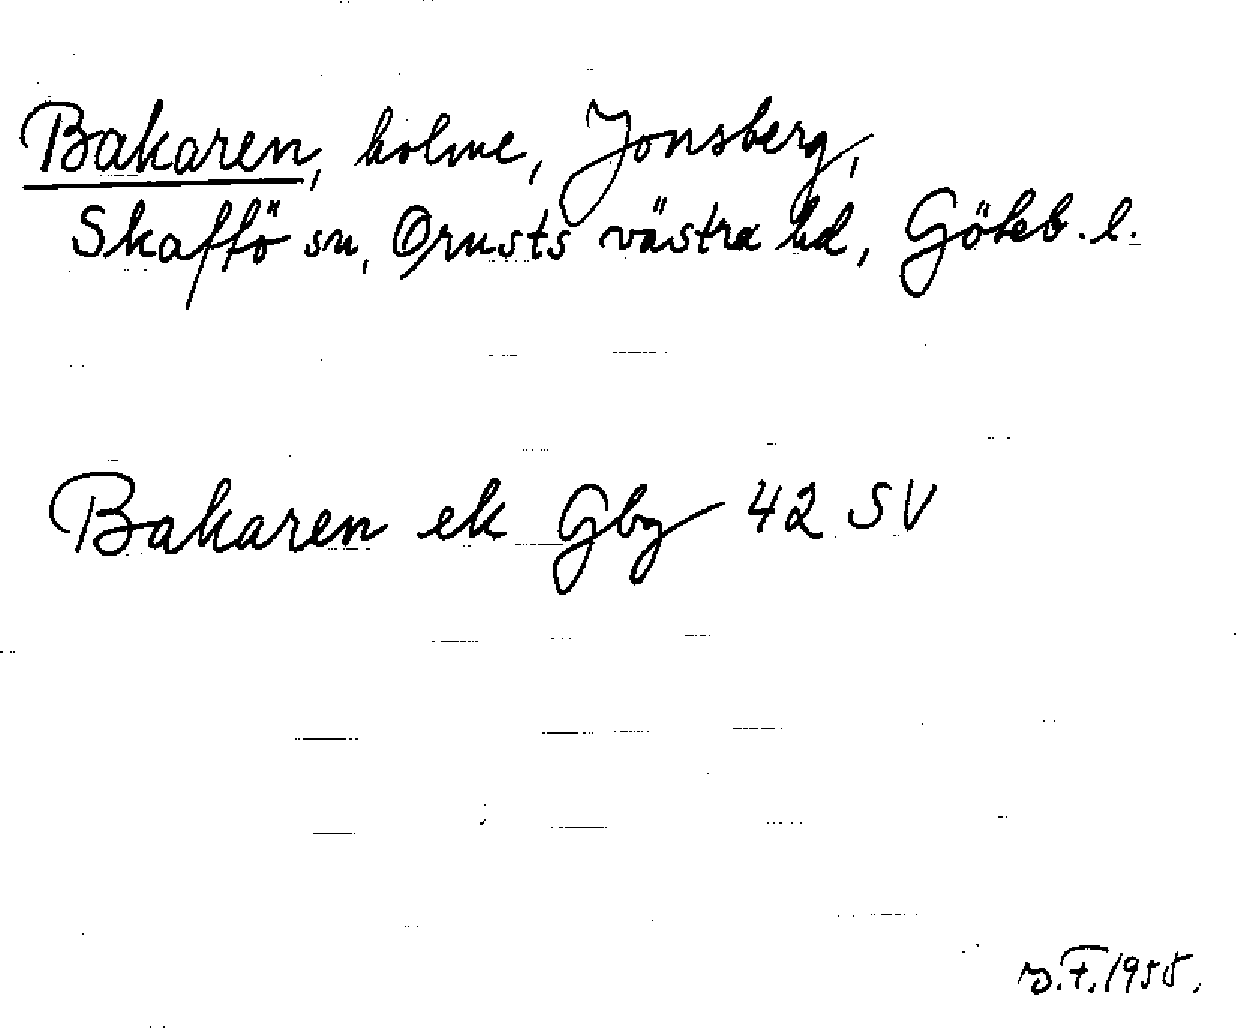 Bakaren, holme, Jonsberg,
Skaftö sn, Orusts västra hd, Göteb. l.
Bakaren ek Gbg 42 SV
1955.